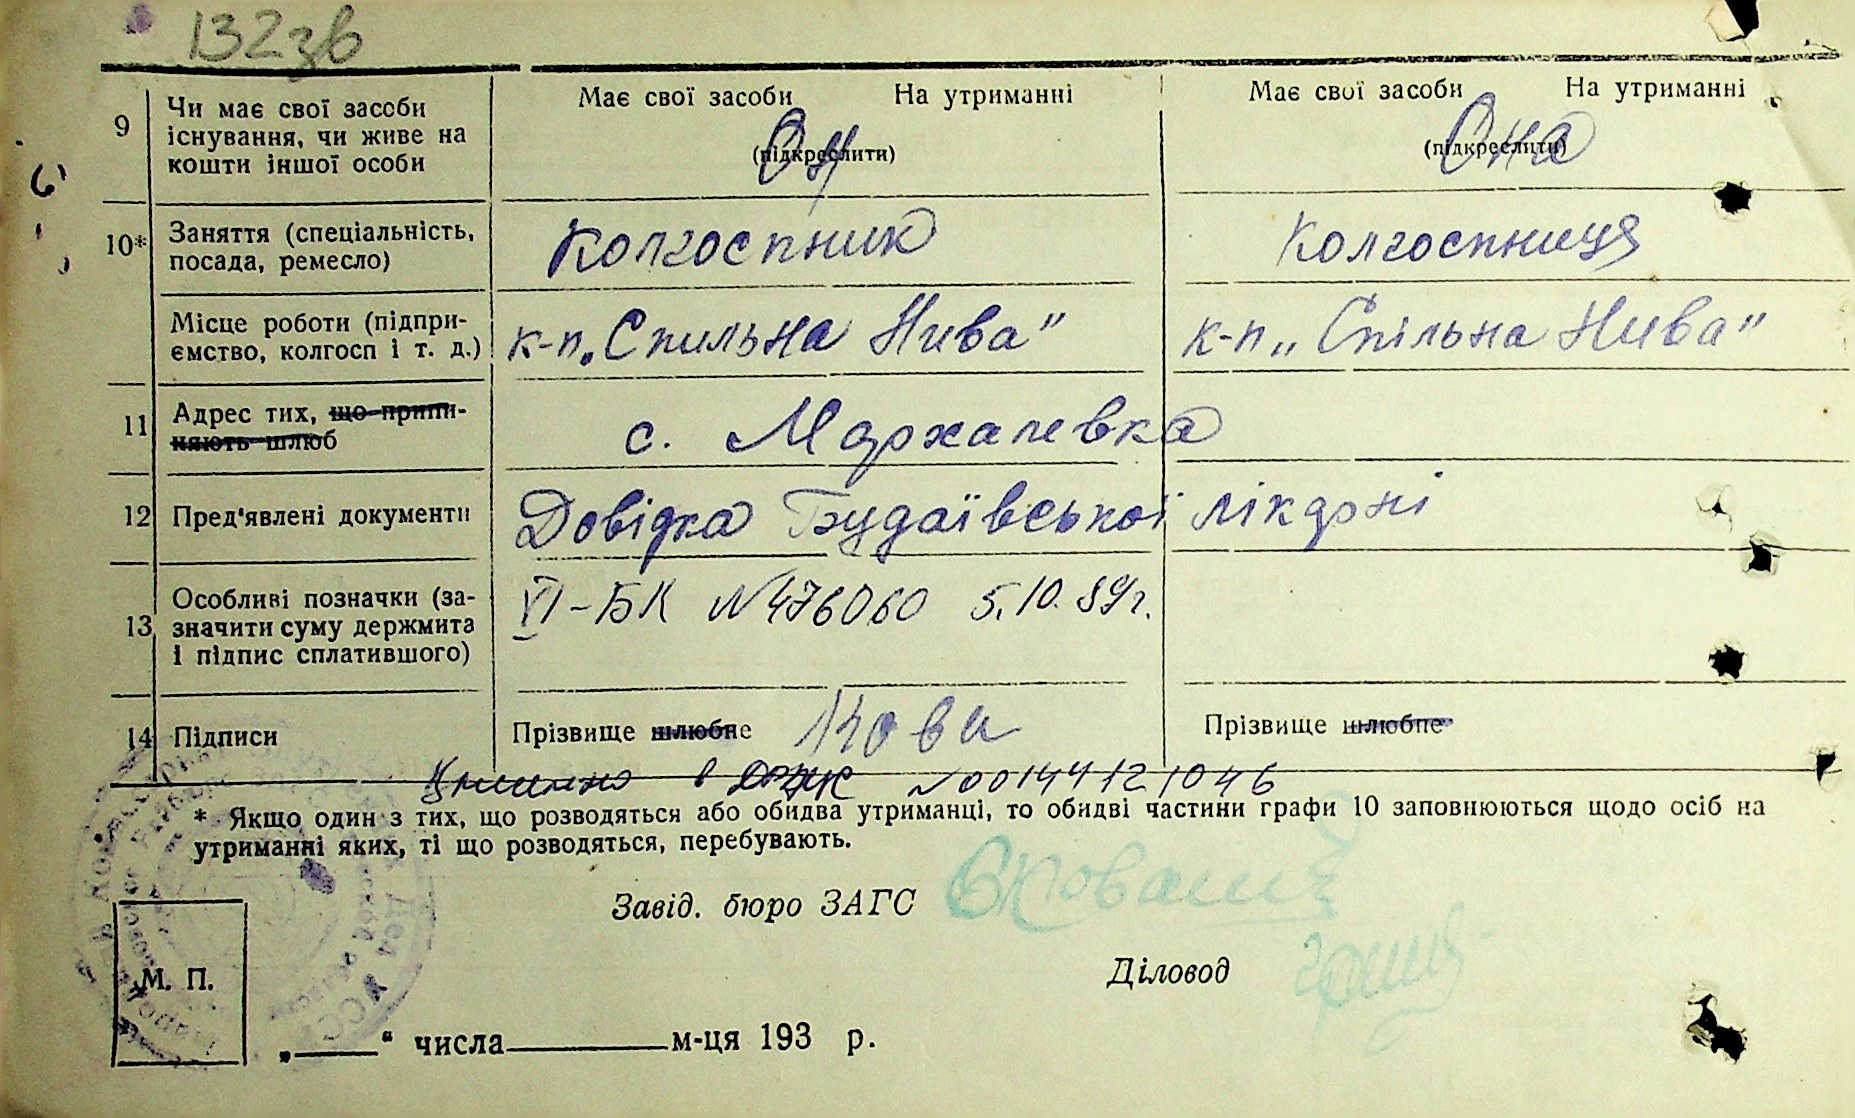 132зв
9
Чи має свої засоби
існування, чи живе на
кошти іншої особи
Має свої засоби На утриманні
(підкреслити)
Он
Має свої засоби На утриманні
(підкреслити)
Она
10*
Заняття (спеціальність,
посада, ремесло)
Колгоспник
Колгоспниця
Місце роботи (підпри-
ємство, колгосп і т. д.)
к-п „Спильна Нива"
к-п „Спільна Нива"
11
Адрес тих, що припи-
няють шлюб
с. Мархалевка
12
Пред'явлені документи
Довідка Будаївської лікарні
13
Особливі позначки (за-
значити суму держмита
і підпис сплатившого)
VI-БК №476060 5.10.89г.
14
Підписи
Прізвище шлюбне
Прізвище шлюбне
в №00144121046
* Якщо один з тих, що розводяться або обидва утриманці, то обидві частини графи 10 заповнюються щодо осіб на
утриманні яких, ті що розводяться, перебувають.
Завід. бюро ЗАГС
Діловод
М. П.
„____" числа________м-ця 193 р.